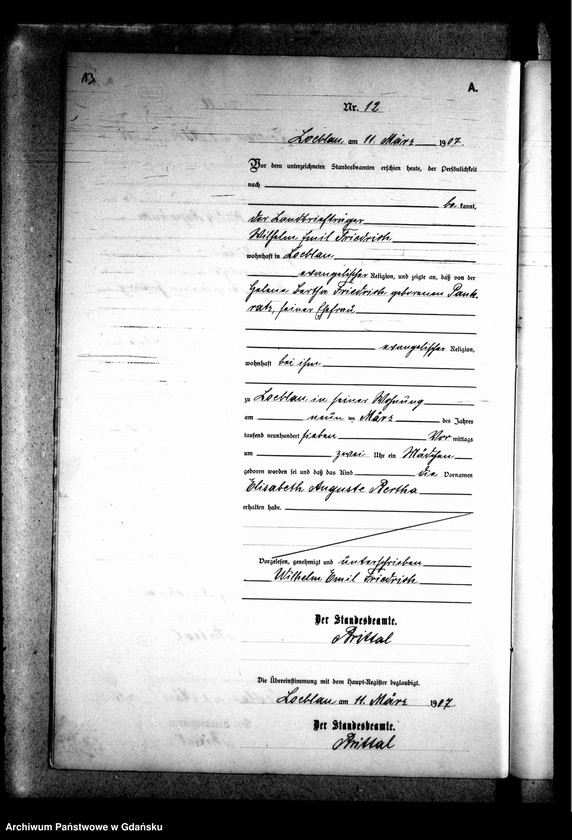 13
A.
Nr. 12
Loeblau, am 11. März 1907.
Vor dem unterzeichneten Standesbeamten erschien heute, der Persönlichkeit
nach
be kannt,
der Landbriefträger
Wilhelm Emil Friedrich
wohnhaft in Loeblau
evangelischer Religion, und zeigte an, daß von der
Helene Bertha Friedrich geborenen Pank-
ratz, seiner Ehefrau
evangelischer Religion,
wohnhaft bei ihm
zu Loeblau in seiner Wohnung
am neun ten März des Jahres
tausend neunhundert sieben Vor mittags
um zwei Uhr ein Mädchen
geboren worden sei und daß das Kind die Vornamen
Elisabeth Auguste Bertha
erhalten habe.
Vorgelesen, genehmigt und unterschrieben
Wilhelm Emil Friedrich
Der Standesbeamte.
Die Übereinstimmung mit dem Haupt-Register beglaubigt.
Loeblau am 11. März 1907.
Der Standesbeamte.
Archiwum Państwowe w Gdańsku